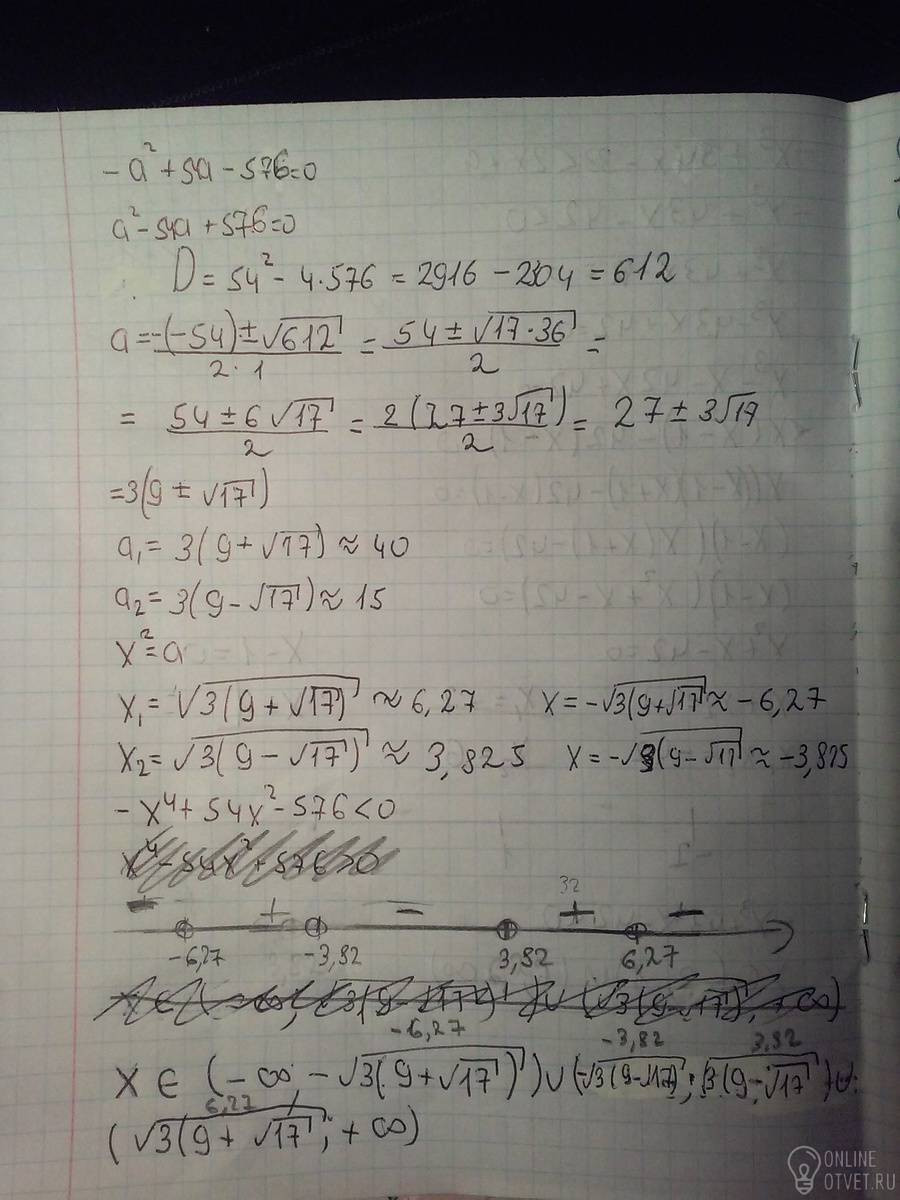 -a² + 54a - 576 = 0
a² - 54a + 576 = 0
D = 54² - 4·576 = 2916 - 2304 = 612
a = -(-54) ± √612 / 2·1 = 54 ± √17·36 / 2 =
= 54 ± 6√17 / 2 = 2(27 ± 3√17) / 2 = 27 ± 3√17
= 3(9 ± √17)
a₁ = 3(9 + √17) ≈ 40
a₂ = 3(9 - √17) ≈ 15
x² = a
x₁ = √3(9 + √17) ≈ 6,27 x = -√3(9 + √17) ≈ -6,27
x₂ = √3(9 - √17) ≈ 3,825 x = -√3(9 - √17) ≈ -3,825
- x⁴ + 54x² - 576 < 0
32
- + - + -
-6,27 -3,82 3,82 6,27
-6,27 -3,82 3,82
x ∈ (-∞, -√3(9 + √17)) ∪ (-√3(9 - √17); √3(9 - √17)) ∪
6,27
(√3(9 + √17), +∞)
ONLINE
OTVET.RU